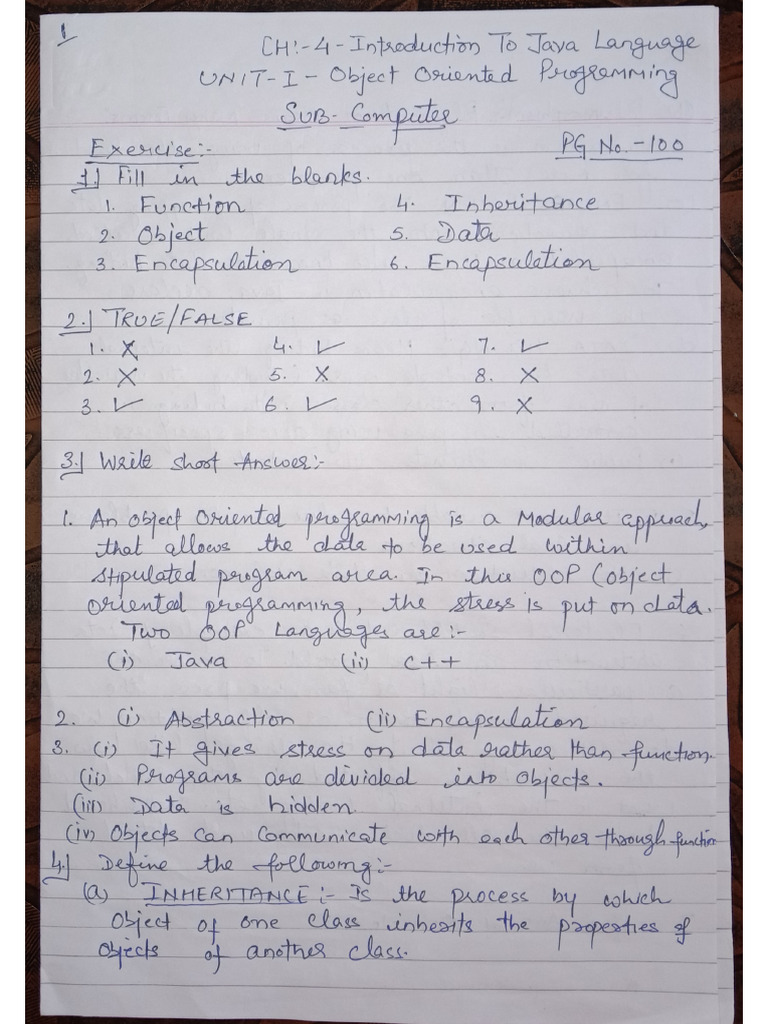 1
CH:-4-Introduction To Java Language
UNIT-I-Object Oriented Programming
SUB-Computer
Exercise:-
PG No.-100
1.] Fill in the blanks.
1. Function 4. Inheritance
2. Object 5. Data
3. Encapsulation 6. Encapsulation
2.] TRUE/FALSE
1. X 4. ✓ 7. ✓
2. X 5. X 8. X
3. ✓ 6. ✓ 9. X
3.] Write short Answer:-
1. An object oriented programming is a Modular appraoch,
that allows the data to be used within
stipulated program area. In this OOP (object
oriented programming, the stress is put on data.
Two OOP Languages are:-
(i) Java (ii) C++
2. (i) Abstraction (ii) Encapsulation
3. (i) It gives stress on data rather than function.
(ii) Programs are divided into objects.
(iii) Data is hidden.
(iv) Objects can communicate with each other through function
4.] Define the following:-
(a) INHERITANCE:- Is the process by which
object of one class inherits the properties of
objects of another class.